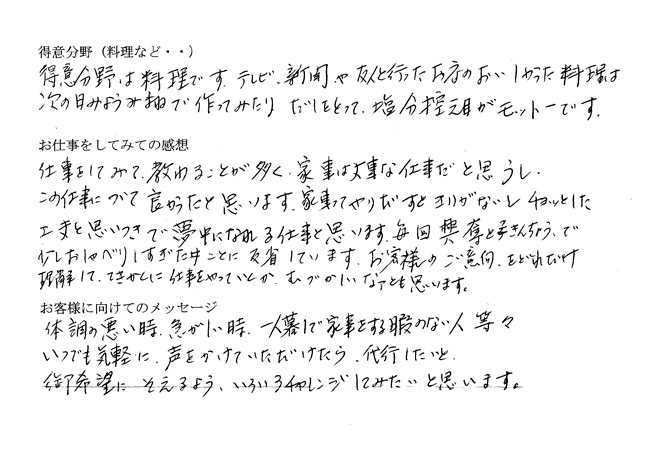 得意分野（料理など・・）
得意分野は料理です。テレビ、新聞や友人と行ったお店のおいしかった料理は
次の日みようみまねで作ってみたり だしをとって、塩分控え目がモットーです。
お仕事をしてみての感想
仕事をしてみて、教わることが多く、家事は大事な仕事だと思うし、
この仕事について良かったと思います。家事ってやりだすとキリがないし チョッとした
工夫と思いつきで夢中になれる仕事と思います。毎回興奮ときんちょうで
少しおしゃべりしすぎた事に反省しています。お客様のご意向、をどれだけ
理解して、てきかくに仕事をやっていくか、むづかしいなァとも思います。
お客様に向けてのメッセージ
体調の悪い時、急がしい時、一人暮しで家事をする暇のない人 等々
いつでも気軽に、声をかけていただけたら、代行したいと、
御希望に そえるよう、いろいろチャレンジしてみたいと思います。